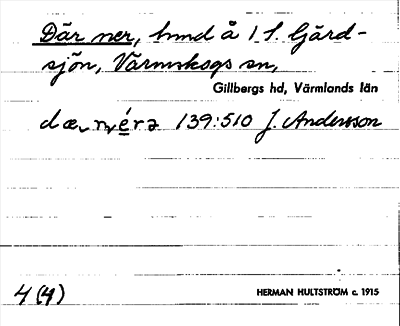 Där ner, hmd å 1 f. Gärd-
sjön, Värmskogs sn,
Gillbergs hd, Värmlands län
139:510 J. Andersson
4 (4)
HERMAN HULTSTRÖM c. 1915